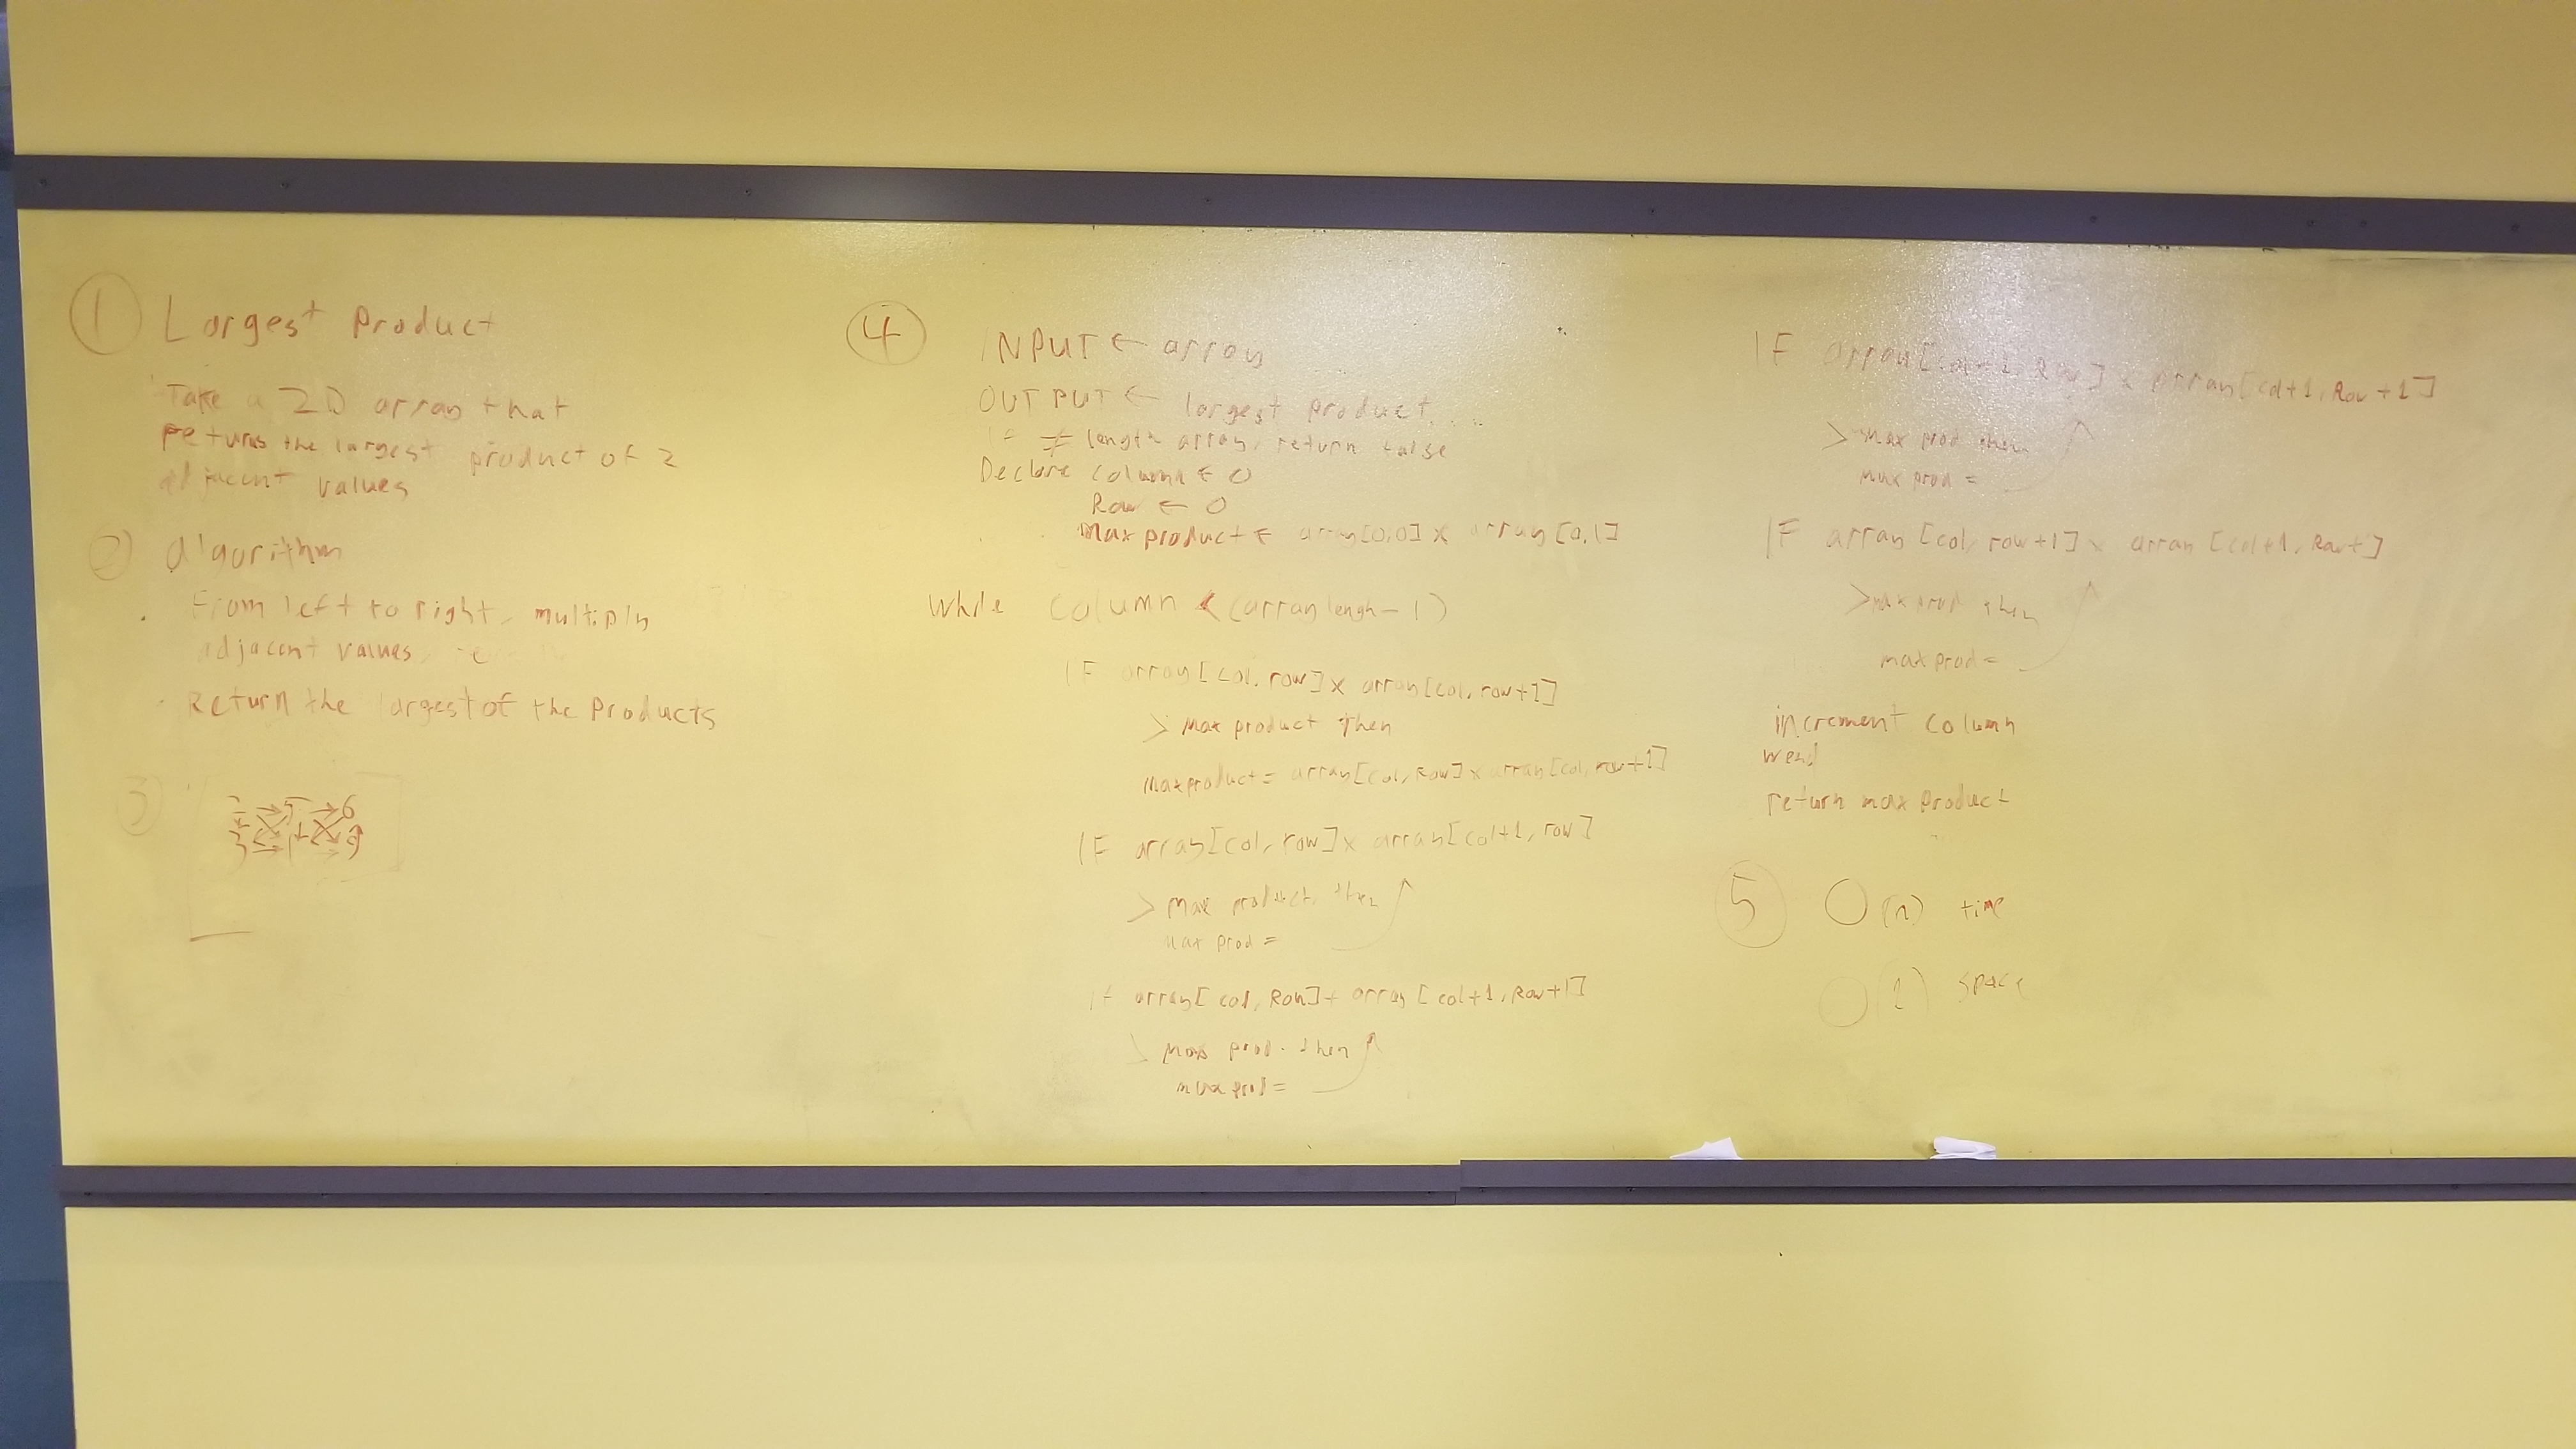 ① Largest Product
Take a 2D array that
returns the largest product of 2
adjacent values
② algorithm
From left to right, multiply
adjacent values,
Return the largest of the Products
③
5 6
3 1 9
④ INPUT ← array
OUTPUT ← largest product....
If ≠ length array, return false
Declare column ← 0
Row ← 0
Max product ← array[0,0] x array[0,1]
While column < (array lengh - 1)
IF array[col, row] x array[col, row+1]
> Max product then
Maxproduct = array[col, Row] x array[col, row+1]
IF array[col, row] x array[col+1, row]
> Max product, then
Max prod =
If array[col, Row] + array[col+1, Row+1]
> Max prod. then
max prod =
IF array[ Row] x array[col+1, Row+1]
> Max prod then
max prod =
IF array[col, row+1] x array[col+1, Row+1]
> max prod then
max prod =
increment column
wend
return max product
⑤ O(n) time
O(1) space